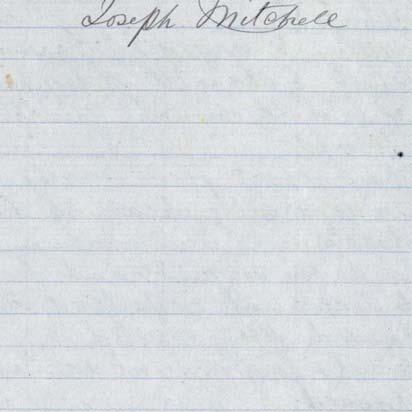 Joseph Mitchell